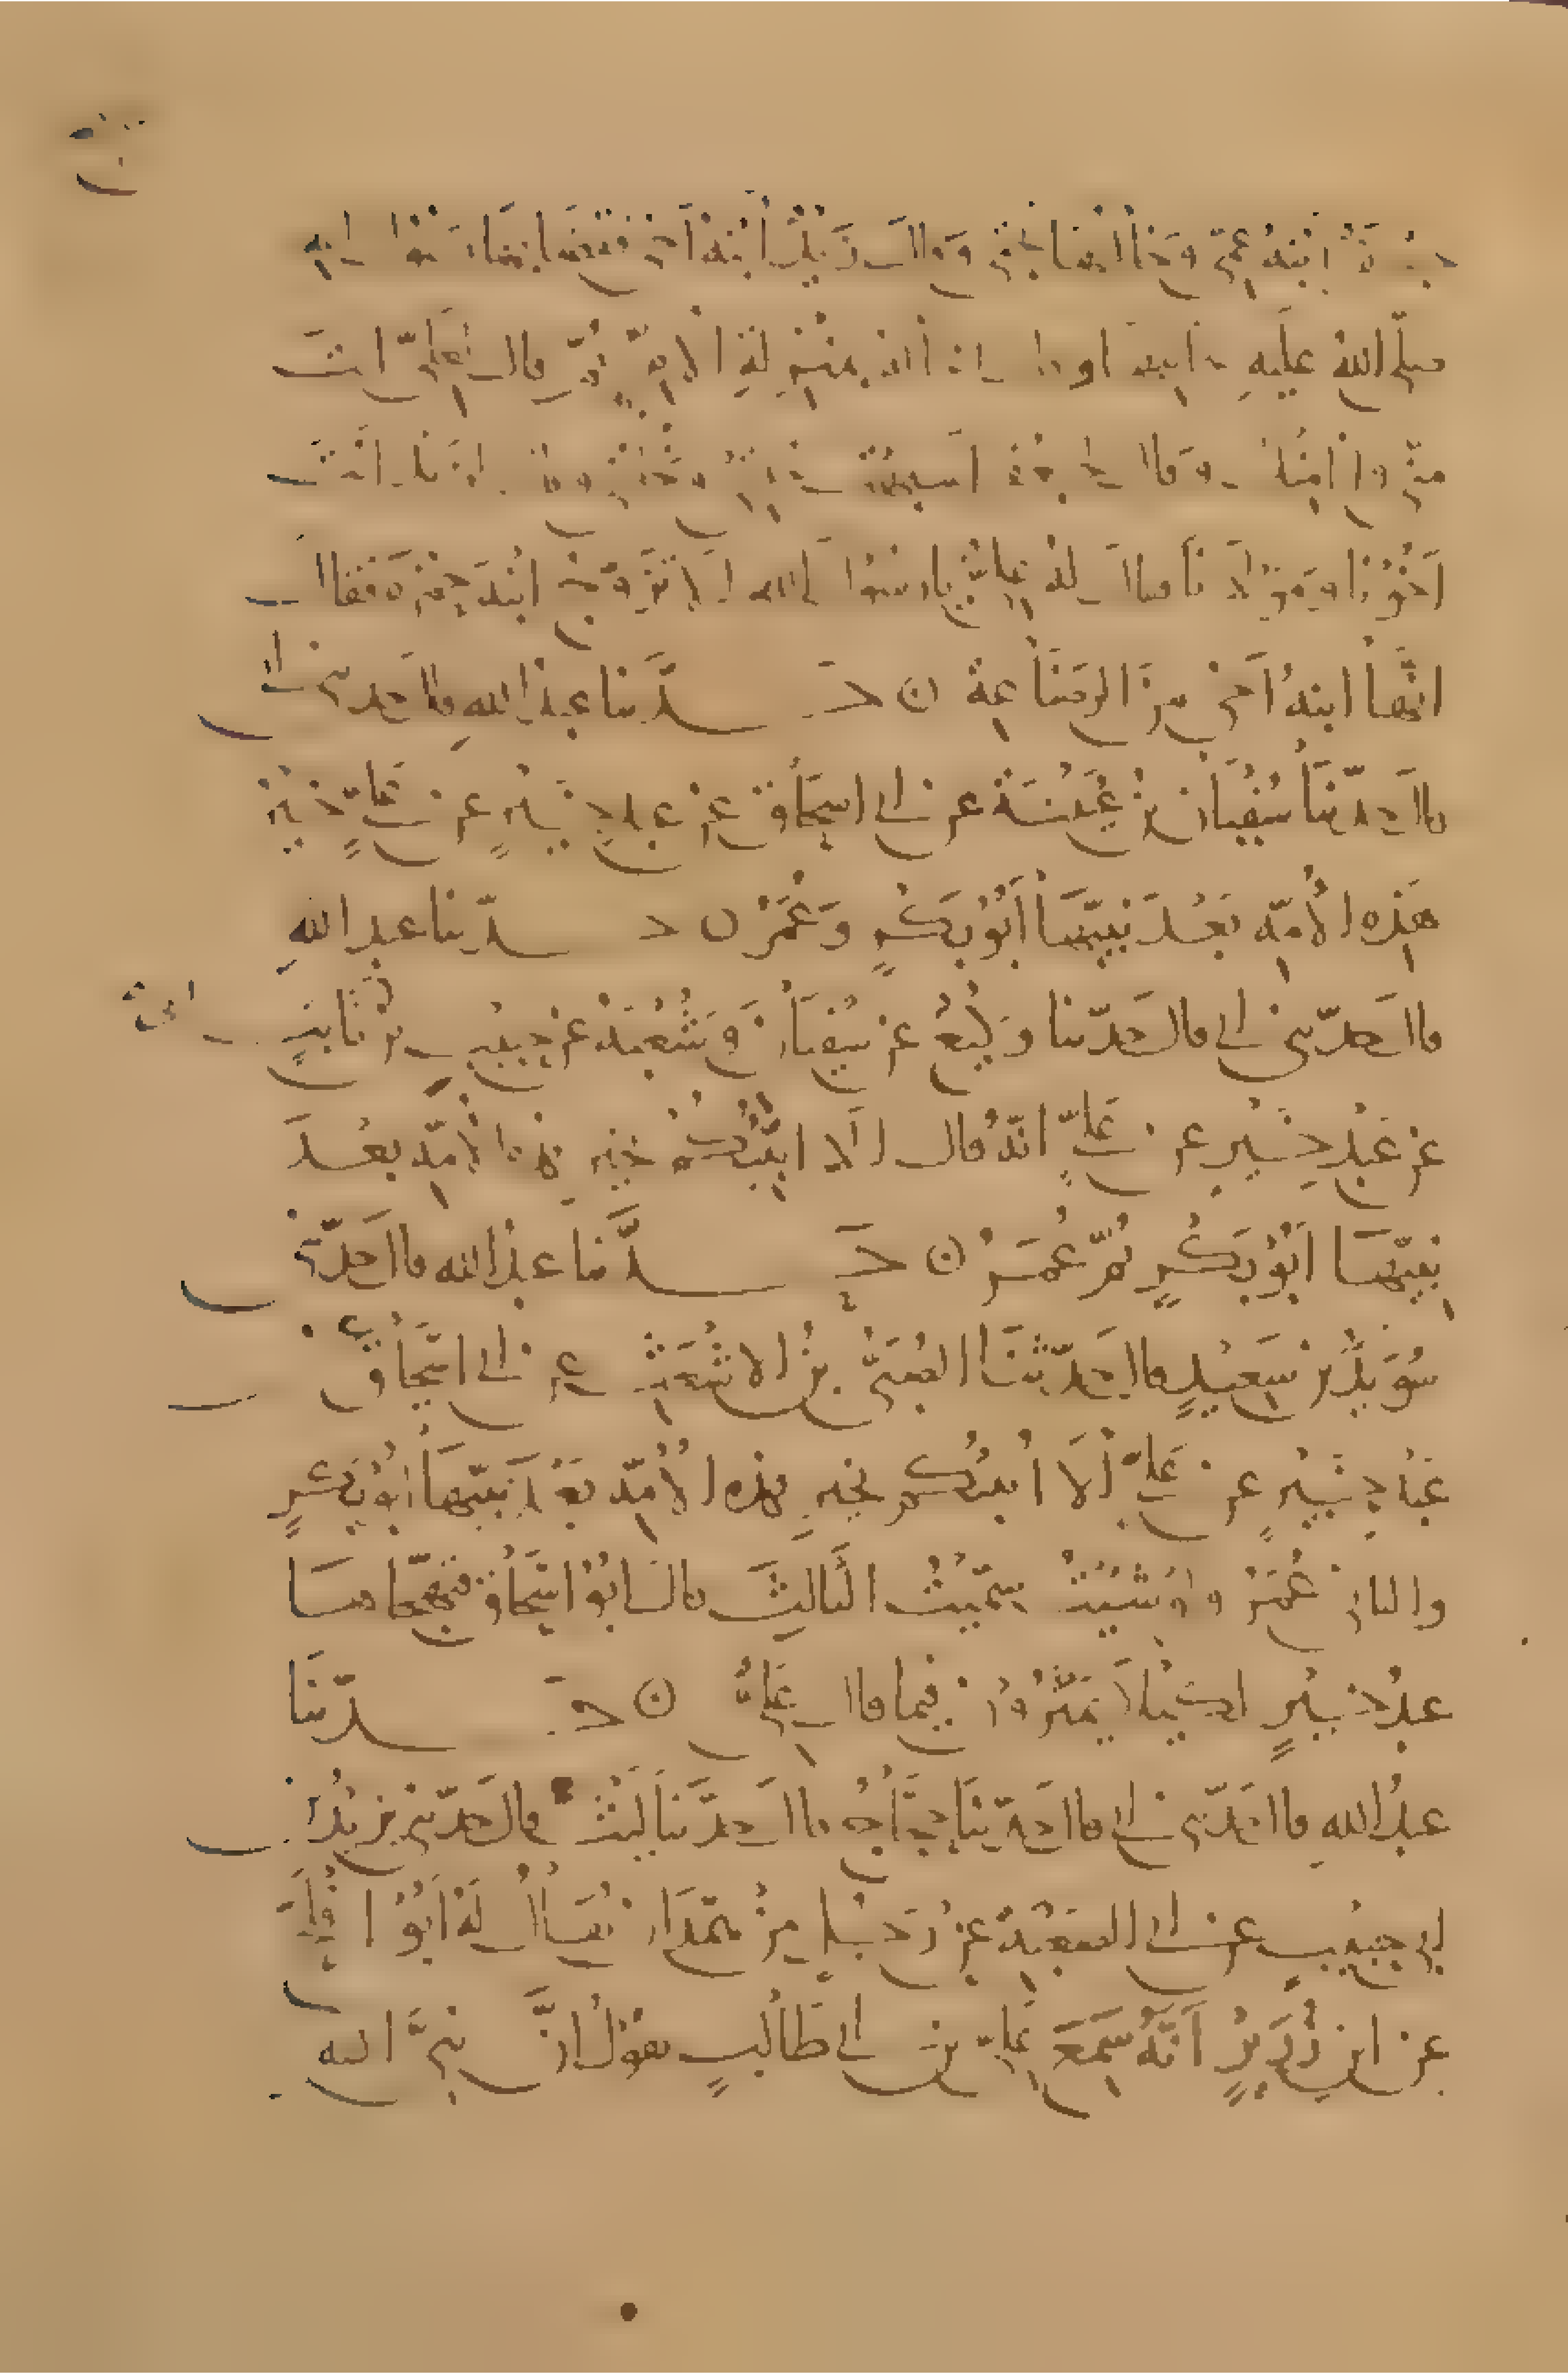 جعفر ابنة عمي وخالتها تحتي وقال زيد ابنة أخي فقضى بها رسول الله
صلى الله عليه لخالتها وقال ان الخالة بمنزلة الام ثم قال لعلي انت
مني وانا منك وقال لجعفر اشبهت خلقي وخلقي وقال لزيد انت
أخونا ومولانا فقال له علي يا رسول الله الا تزوج ابنة حمزة فقال
انها ابنة أخي من الرضاعة ن حدثنا عبد الله قال حدثني أبي
قال حدثنا سفيان بن عيينة عن أبي اسحاق عن عبد خير عن علي خير
هذه الأمة بعد نبيها أبو بكر وعمر ن حدثنا عبد الله
قال حدثني أبي قال حدثنا وكيع عن سفيان وشعبة عن حبيب بن أبي ثابت
عن عبد خير عن علي انه قال ألا انبئكم بخير هذه الأمة بعد
نبيها أبو بكر ثم عمر ن حدثنا عبد الله قال حدثني
سويد بن سعيد قال حدثنا الصبي بن الاشعث عن أبي اسحاق عن
عبد خير عن علي ألا أنبئكم بخير هذه الأمة بعد نبيها أبو بكر
والثاني عمر ولو شئت سميت الثالث قال أبو اسحاق فتهجاها
عبد خير لكيلا يمترون فيما قال علي ن حدثنا
عبد الله قال حدثني أبي قال حدثنا حجاج قال حدثنا ليث قال حدثني يزيد بن
أبي حبيب عن أبي الصعبة عن رجل من همدان يقال له أبو افلح
عن ابن زرير أنه سمع علي بن أبي طالب يقول إن نبي الله